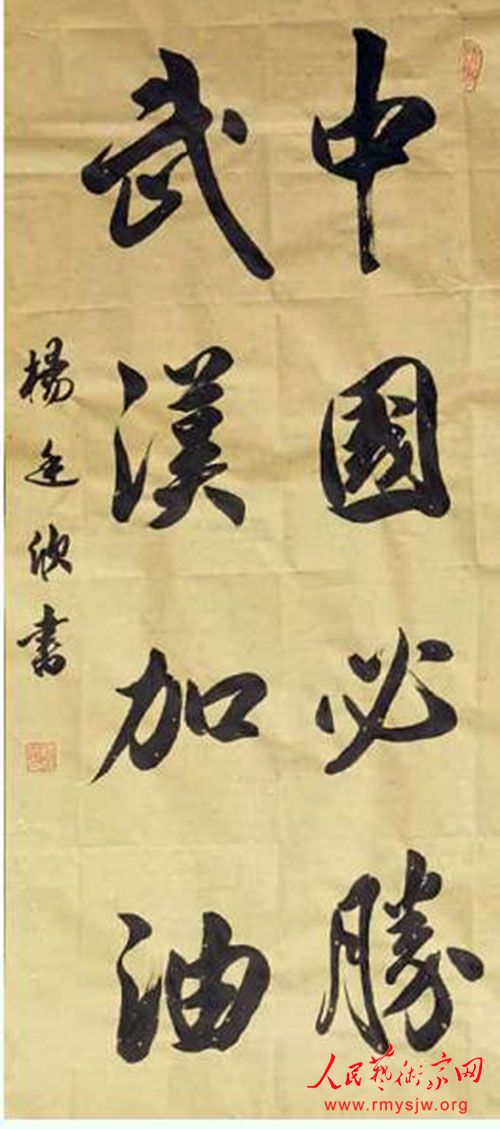 中國必勝
武漢加油
楊延欣書
人民藝術家网
www.rmysjw.org